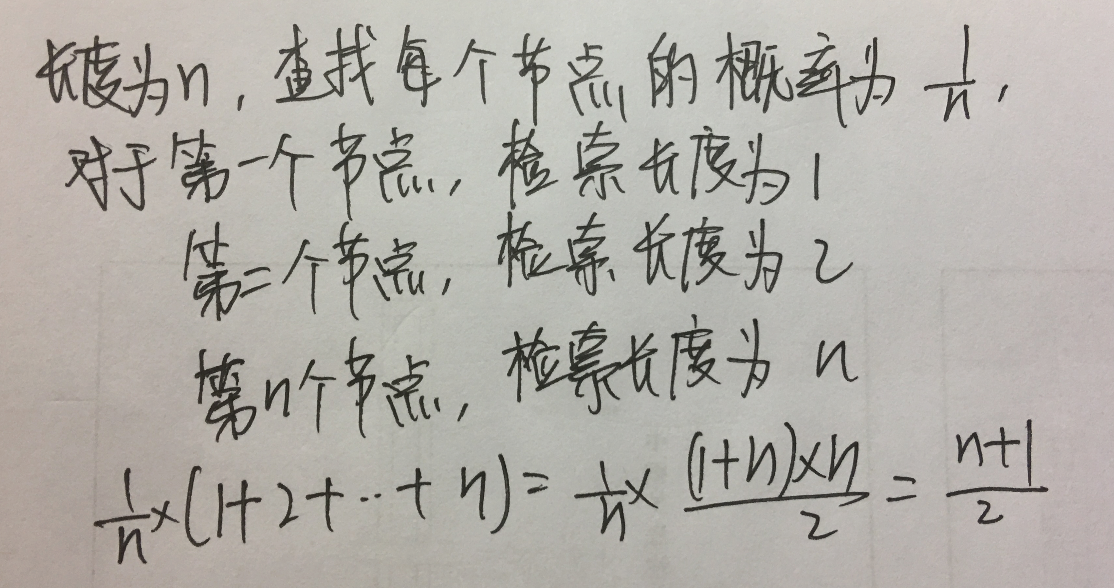 长度为n,查找每个节点的概率为 1/n,
对于第一个节点,检索长度为1
第二个节点,检索长度为2
第n个节点,检索长度为 n
1/n×(1+2+··+n)=1/n×(1+n)×n/2=n+1/2